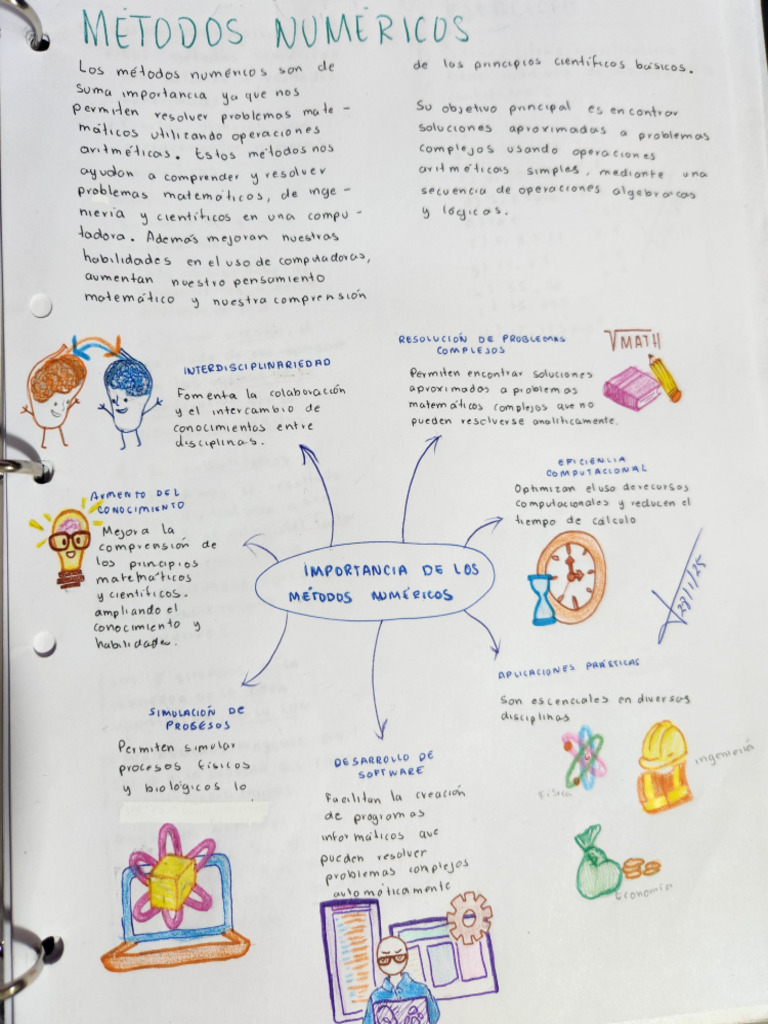 MÉTODOS NUMÉRICOS
Los métodos numéricos son de
suma importancia ya que nos
permiten resolver problemas mate-
máticos utilizando operaciones
aritméticas. Estos métodos nos
ayudan a comprender y resolver
problemas matemáticos, de inge-
niería y científicos en una compu-
tadora. Además mejoran nuestras
habilidades en el uso de computadoras,
aumentan nuestro pensamiento
matemático y nuestra comprensión
de los principios científicos básicos.
Su objetivo principal es encontrar
soluciones aproximadas a problemas
complejos usando operaciones
aritméticas simples, mediante una
secuencia de operaciones algebraicas
y lógicas.
INTERDISCIPLINARIEDAD
Fomenta la colaboración
y el intercambio de
conocimientos entre
disciplinas.
RESOLUCIÓN DE PROBLEMAS
COMPLEJOS
Permiten encontrar soluciones
aproximados a problemas
matemáticos complejos que no
pueden resolverse analíticamente.
√MATH
EFICIENCIA
COMPUTACIONAL
Optimizan el uso de recursos
computacionales y reducen el
tiempo de cálculo
AUMENTO DEL
CONOCIMIENTO
Mejora la
comprensión de
los principios
matemáticos
y científicos.
ampliando el
conocimiento y
habilidades.
IMPORTANCIA DE LOS
MÉTODOS NUMÉRICOS
28/1/25
APLICACIONES PRÁSTICAS
Son escenciales en diversas
disciplinas
Física
Ingeniería
Economía
SIMULACIÓN DE
PROCESOS
Permiten simular
procesos físicos
y biológicos lo
DESARROLLO DE
SOFTWARE
Facilitan la creación
de programas
informáticos que
pueden resolver
problemas complejos
automáticamente